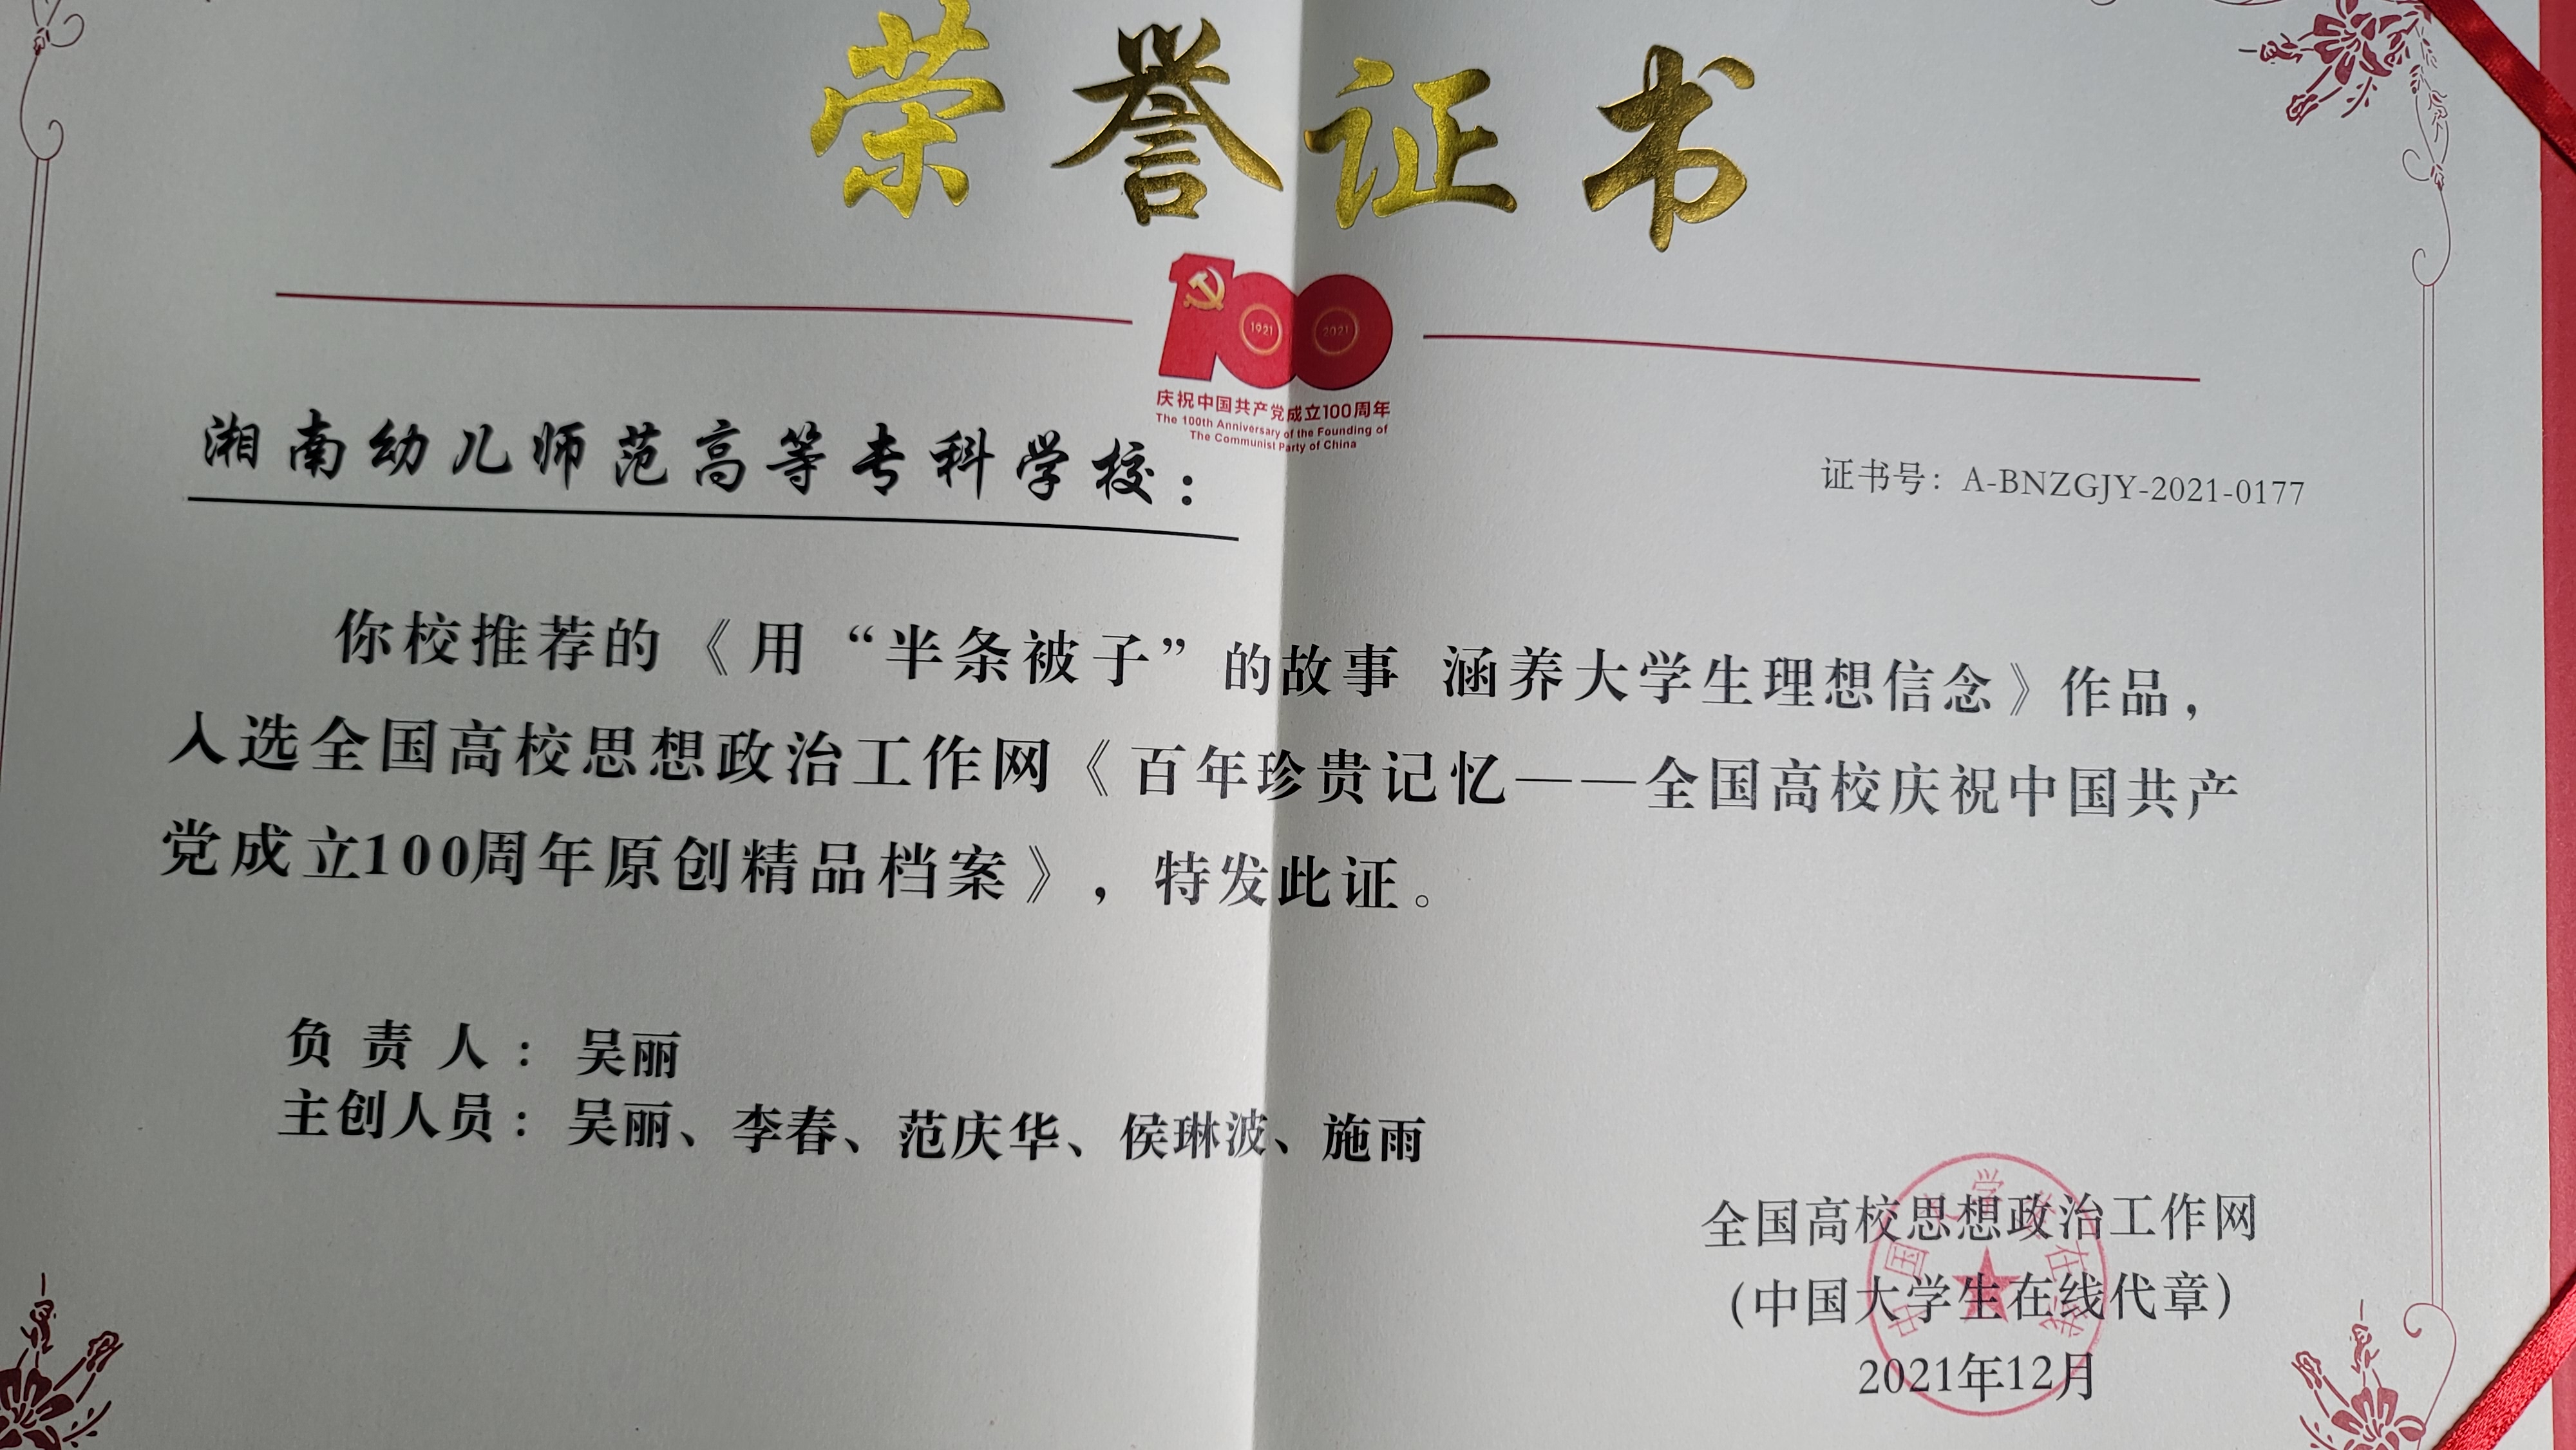 荣誉证书
1921 2021
庆祝中国共产党成立100周年
The 100th Anniversary of the Founding of
The Communist Party of China
湘南幼儿师范高等专科学校：
证书号：A-BNZGJY-2021-0177
你校推荐的《用“半条被子”的故事 涵养大学生理想信念》作品，
入选全国高校思想政治工作网《百年珍贵记忆——全国高校庆祝中国共产
党成立100周年原创精品档案》，特发此证。
负责人：吴丽
主创人员：吴丽、李春、范庆华、侯琳波、施雨
全国高校思想政治工作网
（中国大学生在线代章）
2021年12月
中国大学生在线